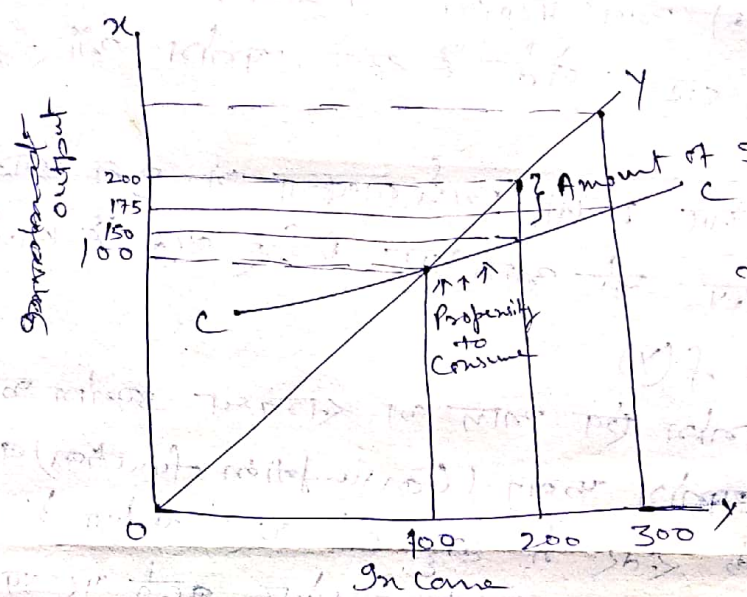 x
Y
output
200
175
150
100
} Amount of
C
C
↑ ↑ ↑
Propensity
to
Consume
0
100 200 300 y
Income